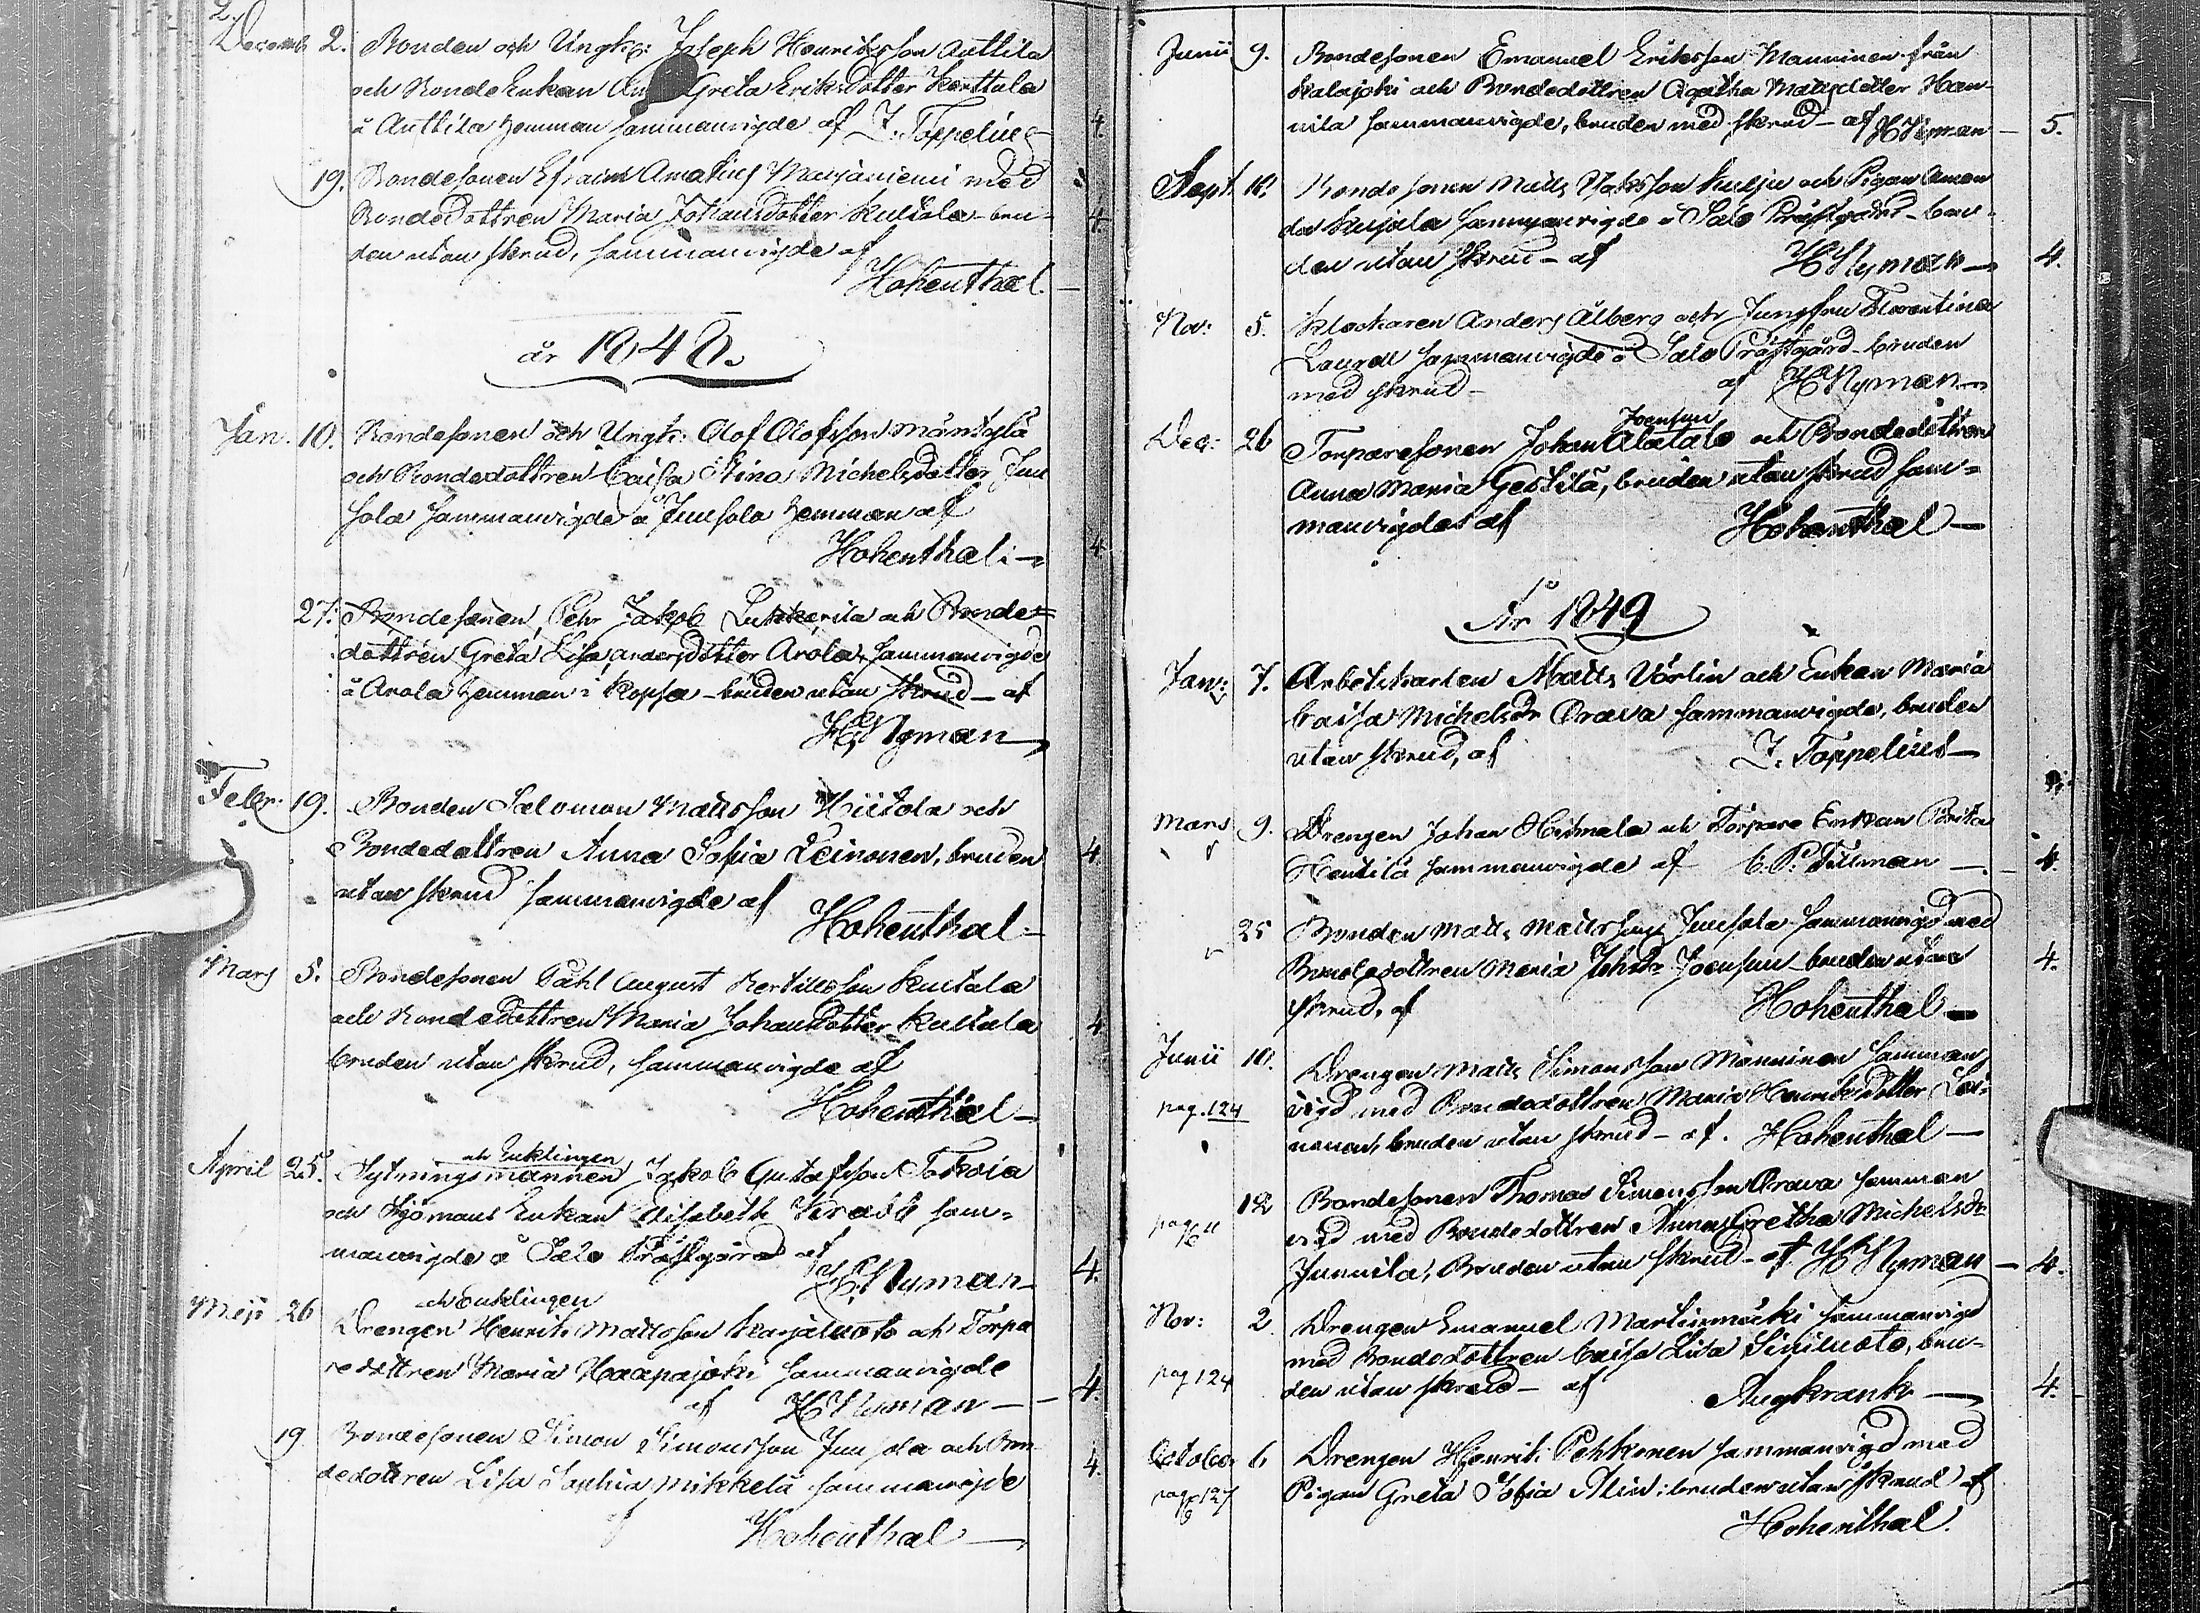 2.
Decemb 2. Bonden och Ungk: Joseph Henriksson Anttila
och Bonde Enkan Greta Eriksdotter Kerttula
å Anttila hemman sammanvigde af J. Toppelius 4.
19. Bondesonen Efraim Amatus Marjaniemi med
Bondedottren Maria Johansdotter Kultala bru- 4.
den utan skrud, sammanvigde af
Hohenthal.
år 1848.
Jan. 10. Bondesonen och Ungk: Olof Olofsson Mäntylä
och Bondedottren Caisa Stina Michelsdotter Juu
sola sammanvigde å Juusola hemman af
Hohenthal 4.
27. Bondesonen, Pehr Jakob och Bonde=
dottren Greta Lisa Andersdotter Arola, sammanvigde
å Arola hemman i Kopsa - bruden utan skrud - af
H Nyman
Febr. 19. Bonden Salomon Mattsson Hiitola och
Bondedottren Anna Sofia Leinonen, bruden 4
utan skrud sammanvigde af
Hohenthal
Mars 5. Bondesonen Påhl August Kertilsson Kultala
och Bondedottren Maria Johansdotter Kultala 4
bruden utan skrud, sammanvigde af
Hohenthal
och Enklingen
April 25. Sytningsmannen Jakob Gustafsson Tokoia
och Sjömans Enkan Elisabeth sam=
manvigde å Salo Prästgård af
H Nyman 4.
och Enklingen
Maji 26 Drengen Henrik Mattsson Karjaluoto och Torpa
redottren Maria Haapajoki sammanvigde
af H Nyman 4.
19 Bondesonen Simon Simonsson Juusola och Bon-
dedottren Lisa Sophia Mikkelä sammanvigde 4.
af
Hohenthal
Junii 9. Bondesonen Emanuel Eriksson Manninen från
Kalajoki och Bondedottren Agatha Mattsdotter Han-
nila sammanvigde, bruden med skrud - af H Nyman 5.
Sept. 10. Bondesonen Matts och Pigan Aman
da Kujala sammanvigde å Salo Prästgård - bru-
den utan skrud - af H Nyman 4.
Nov: 5. Klockaren Anders Ålberg och Jungfru Florentina
Laurell sammanvigde å Salo Prästgård - bruden
med skrud - af H Nyman
Joensuu
Dec: 26 Torparesonen Johan Alatalo och Bondedottren
Anna Maria Gestilä, bruden utan skrud sam=
manvigdes af Hohenthal
År 1849
Jan: 7. Arbetskarlen Matts Vörlin och Enkan Maria
Caisa Michelsdr Orava sammanvigde, bruden
utan skrud, af J. Toppelius
Mars 9. Drengen Johan och Torpare Enkan Brita
Hentilä sammanvigde af C. P. Tillman 4.
25 Bonden Matts Mattsson Juusola sammanvigd med
Bondedottren Maria Johsdr Joensuu bruden utan 4.
skrud, af Hohenthal
Junii 10. Drengen Matts Simonsson Manninen samman
pag. 124 vigd med Bondedottren Maria Henriksdotter Lei-
nonen, bruden utan skrud - af. Hohenthal
Bondesonen Thomas Simonsson Orava samman
vigd med Bondedottren Anna Gretha Michelsdr
Junnila, Bruden utan skrud - af H Nyman 4.
Nov: 2 Drengen Emanuel Martinmäki sammanvigd
med Bondedottren Caisa Lisa Siniluoto, bru-
pag 124 den utan skrud - af Aug Krank 4.
October 6 Drengen Henrik Pehkonen sammanvigd med
pag 127 Pigan Greta Sofia Alin: bruden utan skrud af
Hohenthal.